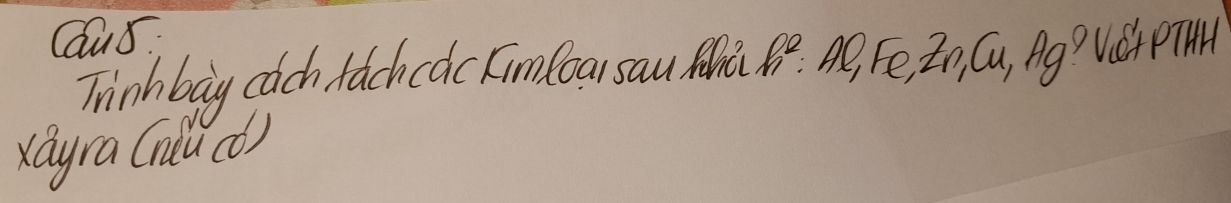 Câu 5:
Trình bày cách tách các kim loại sau khỏi h²: Al, Fe, Zn, Cu, Ag? Viết PTHH
xảy ra (nếu có)